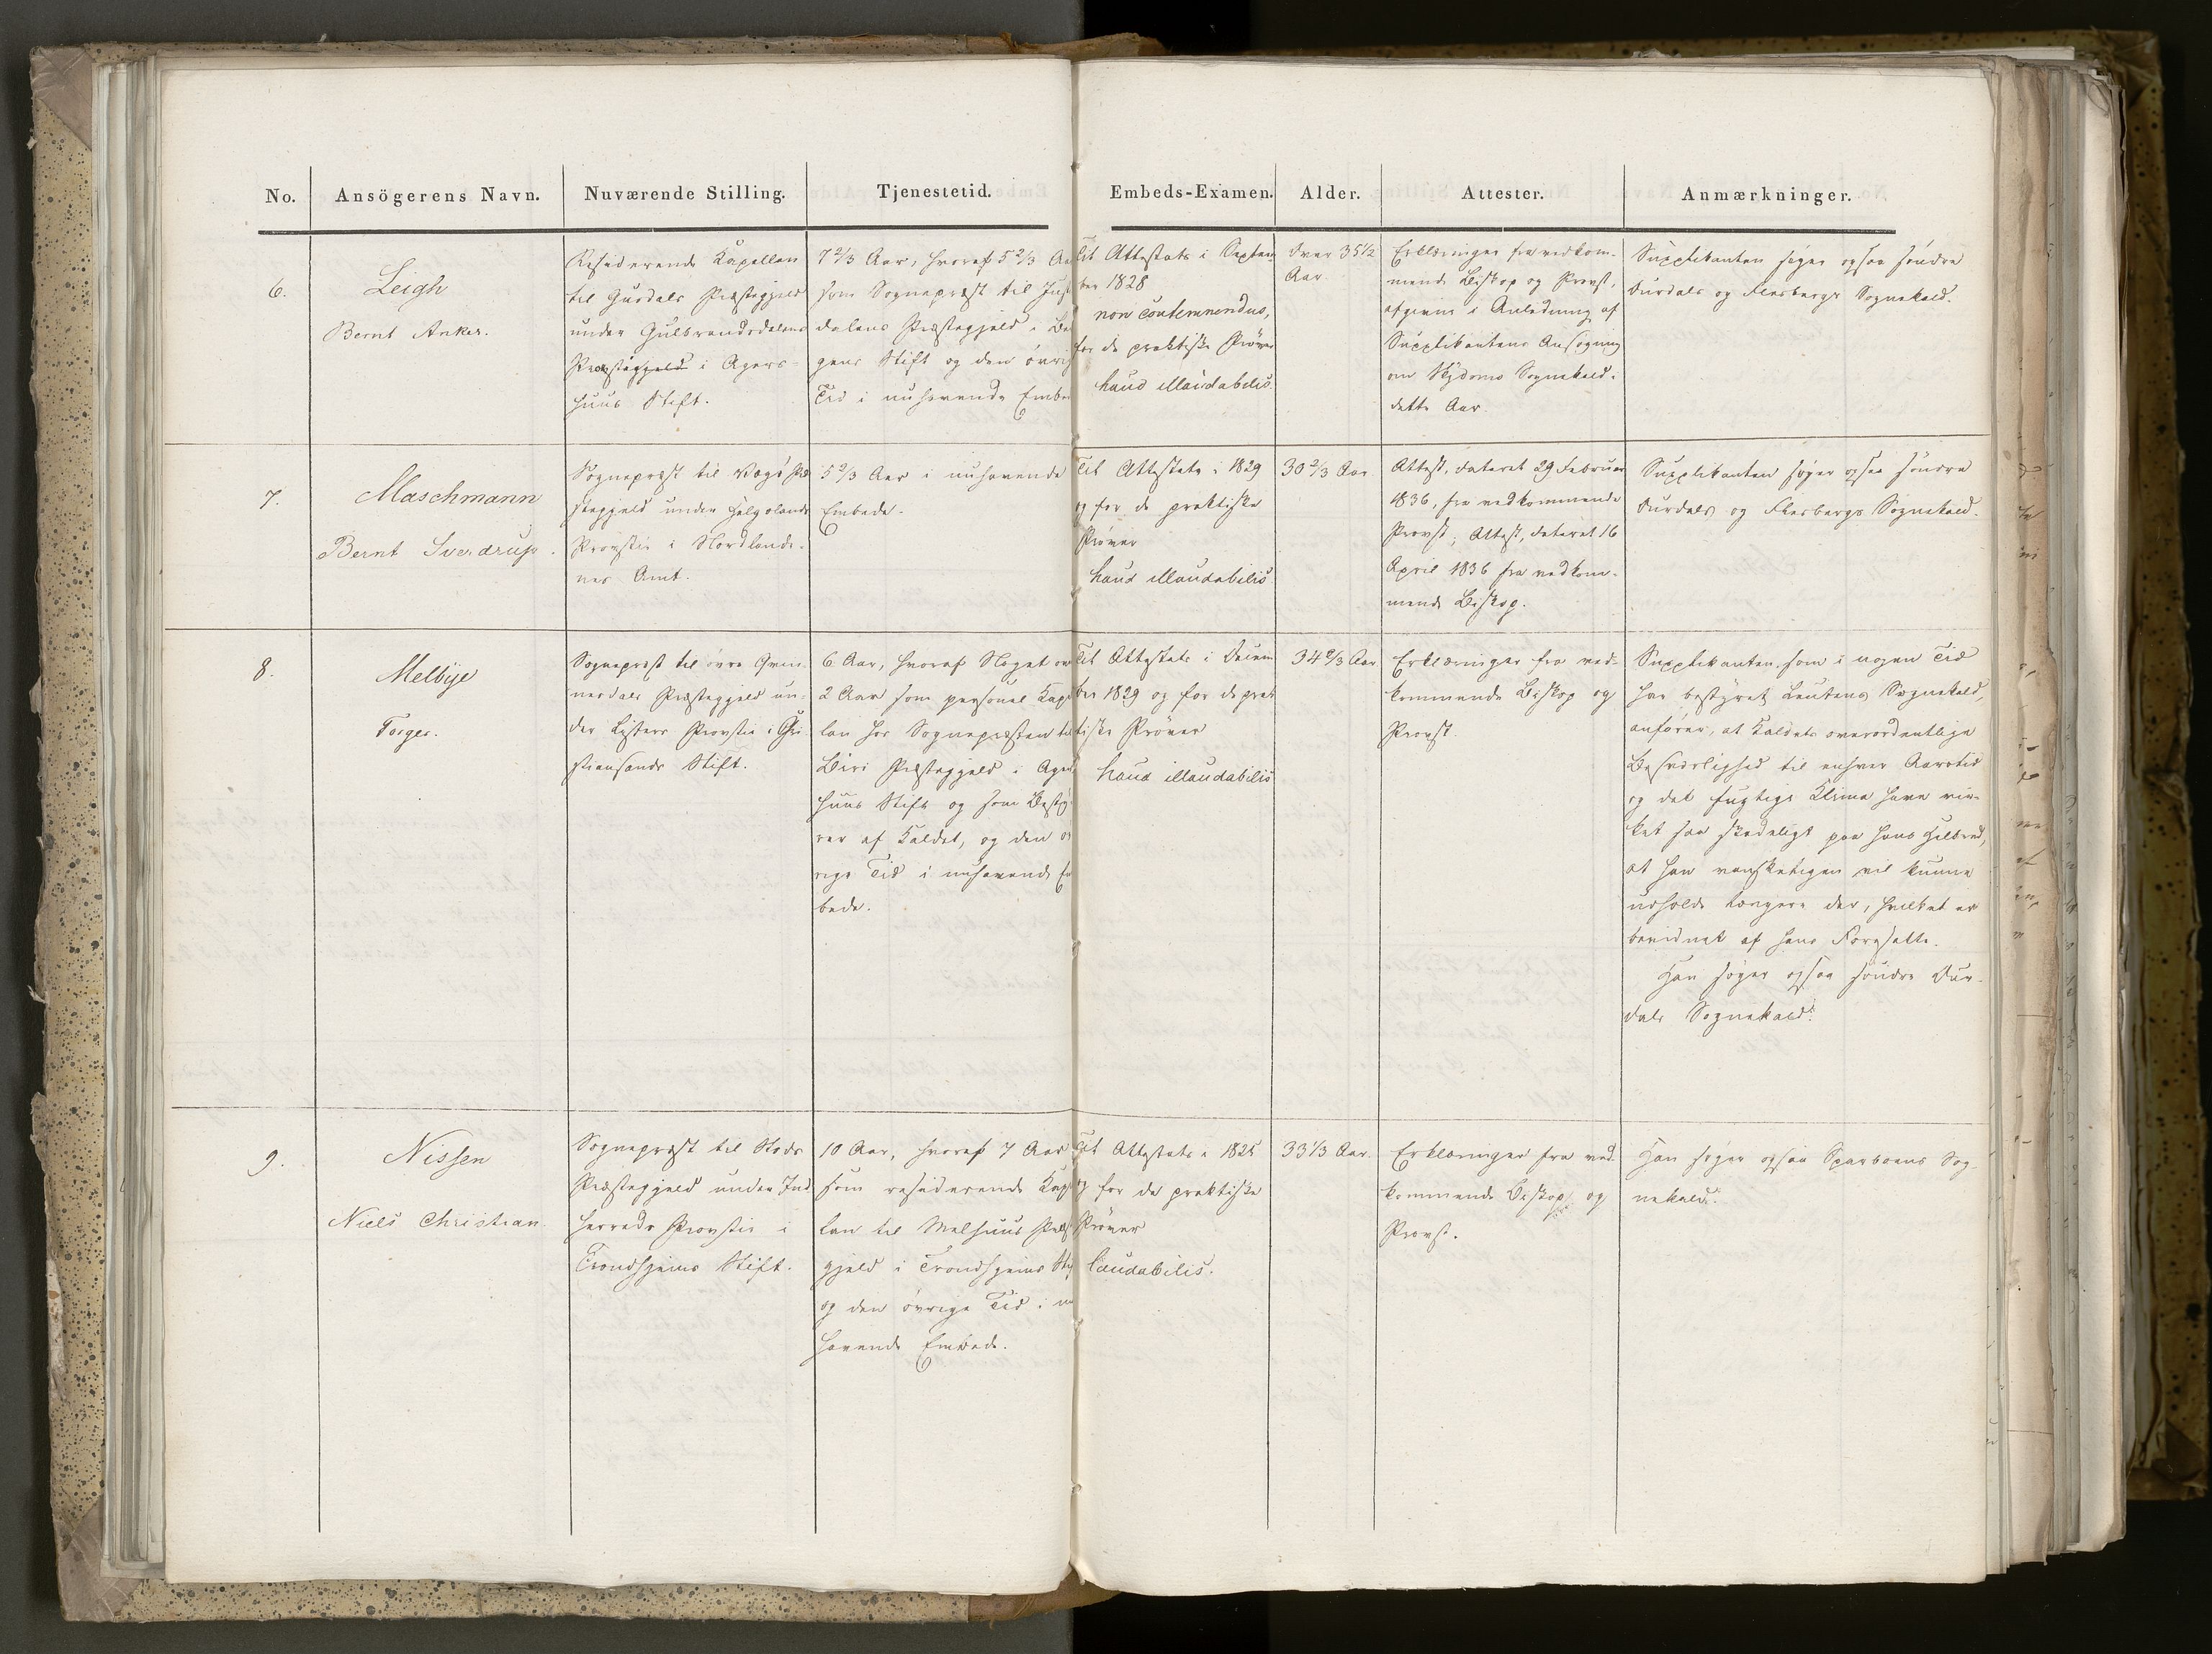 No. Ansögerens Navn. Nuværende Stilling. Tjenestetid. Embeds-Examen. Alder. Attester. Anmærkninger.
6.
Leigh
Bernt Anker.
Residerende Kapellan
til Gusdals Præstegjeld
under Gulbrandsdalens
Præstegjeld i Agers-
huus Stift.
7 2/3 Aar, hvoraf 5 2/3 Aa
som Sognepræst til Just
dalens Præstegjeld i Ber
gens Stift og den övrig
Tid i nuhavende Embe
Til Attestats i Septem
ber 1828
non contemnendus,
for de praktiske Pröver
haud illaudabilis.
Over 35 1/2
Aar.
Erklæringer fra vedkom-
mende Biskop og Provst,
afgivne i Anledning af
Supplikantens Ansögning
om Sognekald i
dette Aar.
Supplikanten söger ogsaa söndre
Aurdals og Flesbergs Sognekald.
7.
Maschmann
Bernt Sverdrup.
Sognepræst til Vegö Præ
stegjeld under Helgolands
Provstie i Nordlande-
nes Amt.
5 2/3 Aar i nuhavende
Embede.
Til Attestats i 1829
og for de praktiske
Pröver
haud illaudabilis
30 2/3 Aar
Attest, dateret 29 Februar
1836, fra vedkommende
Provst; Attest, dateret 16
April 1836 fra vedkom-
mende Biskop.
Supplikanten söger ogsaa söndre
Aurdals og Flesbergs Sognekald.
8.
Melbye
Torger.
Sognepræst til övre Qvin-
nesdals Præstegjeld un-
der Listers Provstie i Chri
stiansands Stift.
6 Aar, hvoraf Noget ov
2 Aar som personel Kapel
lan hos Sognepræsten til
Biri Præstegjeld i Agers
huus Stift og som Besty
rer af Kaldet, og den öv
rige Tid i nuhavende Em
bede.
Til Attestats i Decem
ber 1829 og for de prak
tiske Pröver
haud illaudabilis
34 2/3 Aar
Erklæringer fra ved-
kommende Biskop og
Provst.
Supplikanten, som i nogen Tid
har bestyret Sognekald,
anförer, at Kaldets overordentlige
Besværlighed til enhver Aarstid
og det fugtige Klima have vir-
ket saa skadeligt paa hans Helbred,
at han vanskeligen vil kunne
udholde længere der, hvilket er
bevidnet af hans Foresatte.
Han söger ogsaa söndre Aur-
dals Sognekald.
9.
Nissen
Niels Christian.
Sognepræst til Stods
Præstegjeld under Ind
herreds Provstie i
Trondhjems Stift.
10 Aar, hvoraf 7 Aar
som residerende Kapel
lan til Melhuus Præste
gjeld i Trondhjems Stif
og den övrige Tid i nu
havende Embede.
Til Attestats i 1825
og for de praktiske
Pröver
laudabilis.
33 1/3 Aar.
Erklæringer fra ved-
kommende Biskop og
Provst.
Han söger ogsaa Sparboens Sog-
nekald.